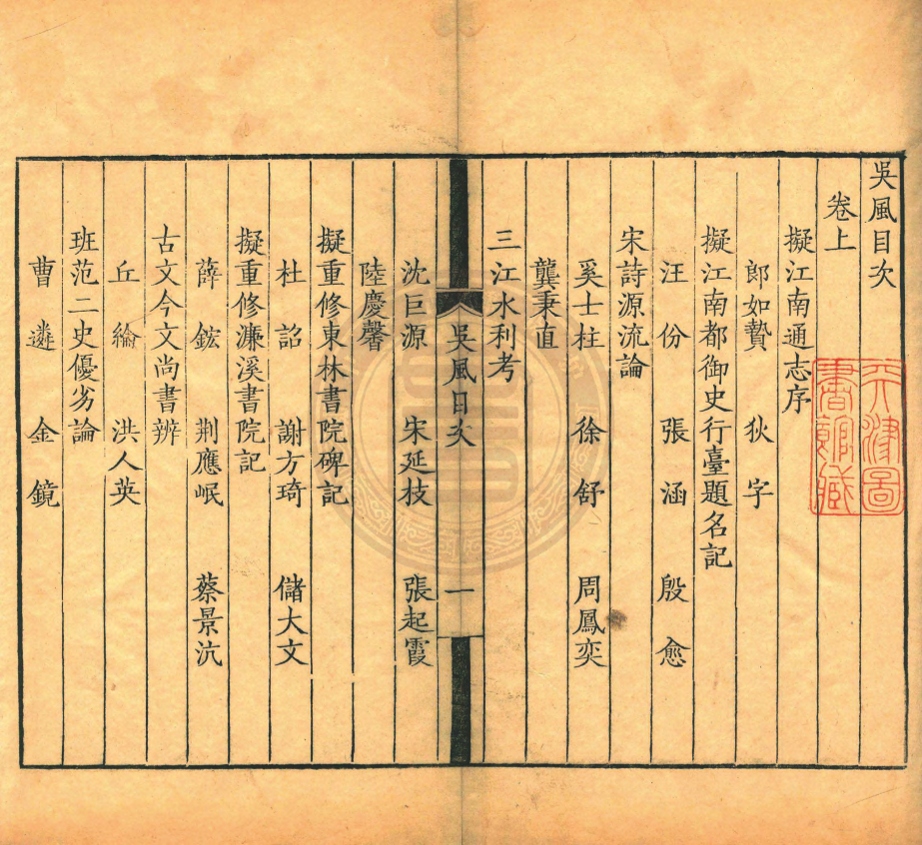 吳風目次
卷上
擬江南通志序
郎如贄 狄字
擬江南都御史行臺題名記
汪份 張涵 殷愈
宋詩源流論
奚士柱 徐舒 周鳳奕
龔秉直
三江水利考
吳風目次 一
沈巨源 宋延枝 張起霞
陸慶馨
擬重修東林書院碑記
杜詔 謝方琦 儲大文
擬重修濂溪書院記
薛鋐 荆應岷 蔡景沆
古文今文尚書辨
丘綸 洪人英
班范二史優劣論
曹遴 金鏡
天津圖
書館藏